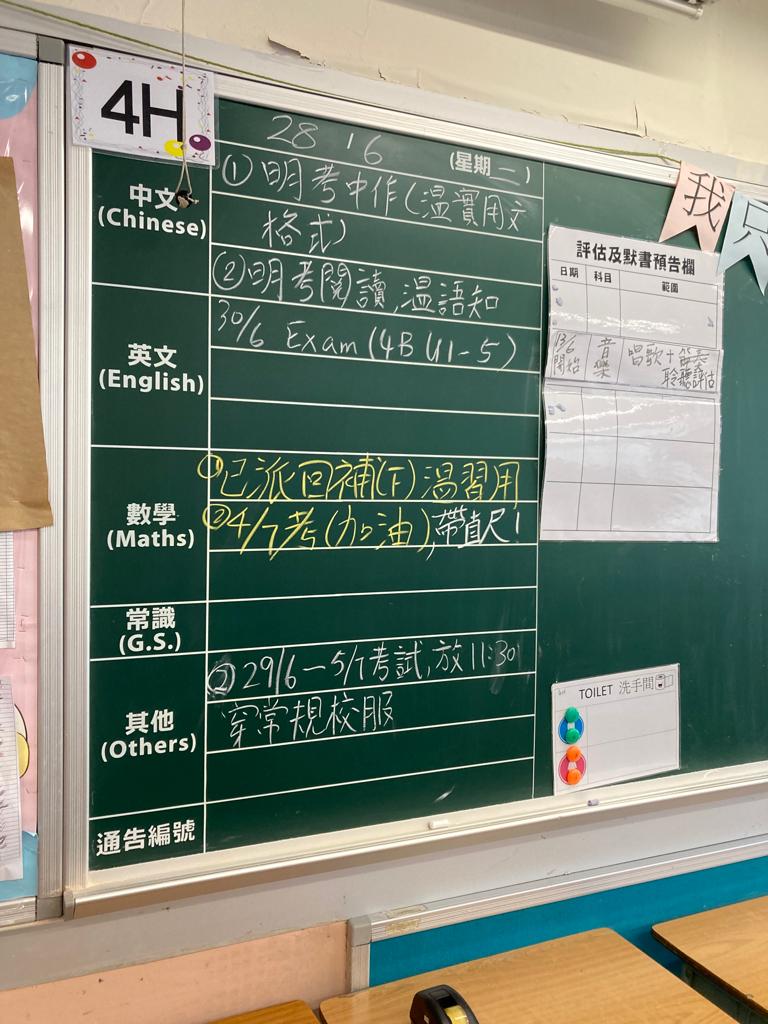 4H
28 / 6 (星期二)
中文
(Chinese)
①明考中作(溫實用文
格式)
②明考閱讀,溫語知
英文
(English)
30/6 Exam (4B U1-5)
數學
(Maths)
①已派回補(下)溫習用
②4/7考(加油),帶直尺!
常識
(G.S.)
其他
(Others)
② 29/6—5/7考試,放11:30
穿常規校服
通告編號
評估及默書預告欄
日期 科目 範圍
13/6 開始 音樂 唱歌+節奏
聆聽評估
TOILET 洗手間
我只